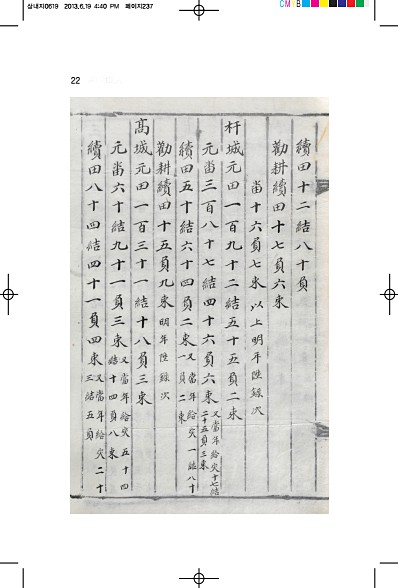 삼내지0619 2013.6.19 4:40 PM 페이지237
CMYB
22
續田十二結八十負
勸耕續田十七負六束
畓十六負七束以上明年陞錄次
杆城元田一百九十二結五十五負二束
元畓三百八十七結四十六負六束又當年給灾十七結二十五負三束
續田五十結六十四負二束又當年給灾一結八十一負二束
勸耕續田十五負九束明年陞錄次
高城元田一百三十一結十八負三束
元畓六十結九十一負三束又當年給灾五十四結十四負八束
續田八十四結四十一負四束又當年給灾二十三結五負